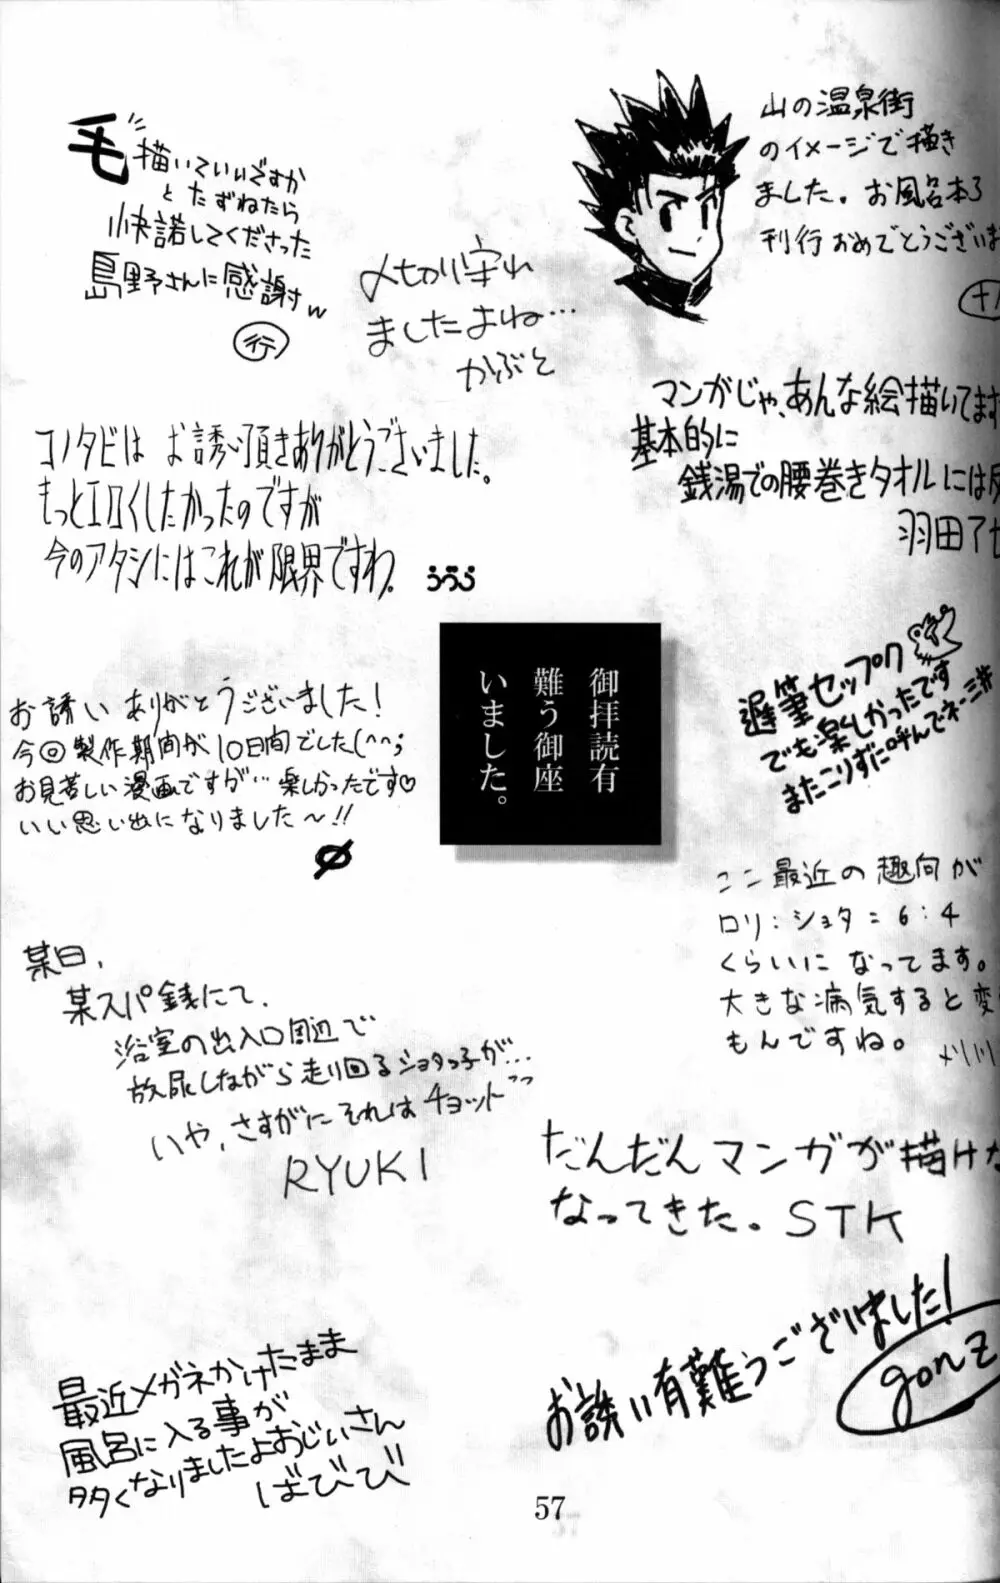 毛描いていいですか
とたずねたら
快諾してくださった
島野さんに感謝w
行
〆切り守れ
ましたよね…
かぶと
山の温泉街
のイメージで描き
ました。お風呂本3
刊行おめでとうございま
コノタビは お誘い頂きありがとうございました。
もっとエロくしたかったのですが
今のアタシにはこれが限界ですわ。
うづら
マンガじゃ、あんな絵描いてます
基本的に
銭湯での腰巻きタオルには反
羽田
御拝読有
難う御座
いました。
お誘いありがとうございました!
今回製作期間が10日間でした(^^;
お見苦しい漫画ですが… 楽しかったです♡
いい思い出になりました~!!
遅筆セップク
でも楽しかったです
またこりずに呼んでネー
ここ最近の趣向が
ロリ:ショタ=6:4
くらいになってます。
大きな病気すると変
もんですね。
某日、
某スパ銭にて、
浴室の出入口周辺で
放尿しながら走り回るショタっ子が…
いや、さすがにそれはチョット
RYUKI
だんだんマンガが描けな
なってきた。STK
お誘い有難うございました!
gonz
最近メガネかけたまま
風呂に入る事が
多くなりましたよおじいさん
ばびび
57